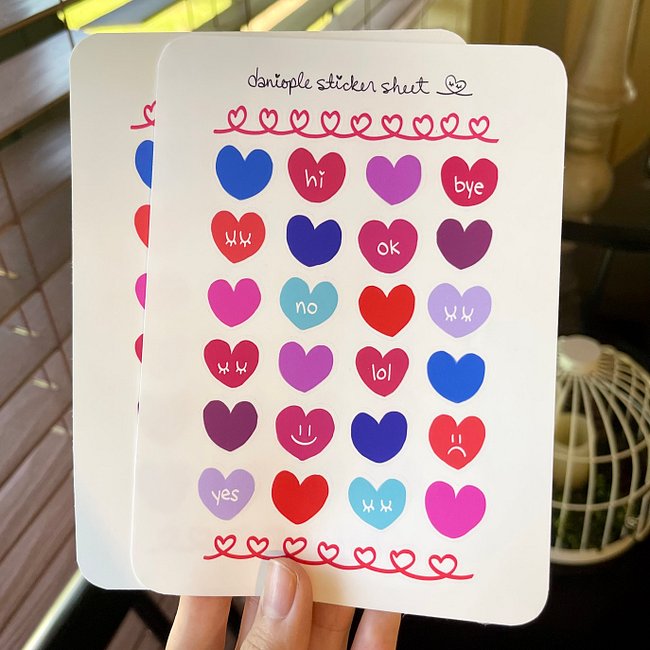 daniople sticker sheet
hi
bye
ok
no
lol
yes